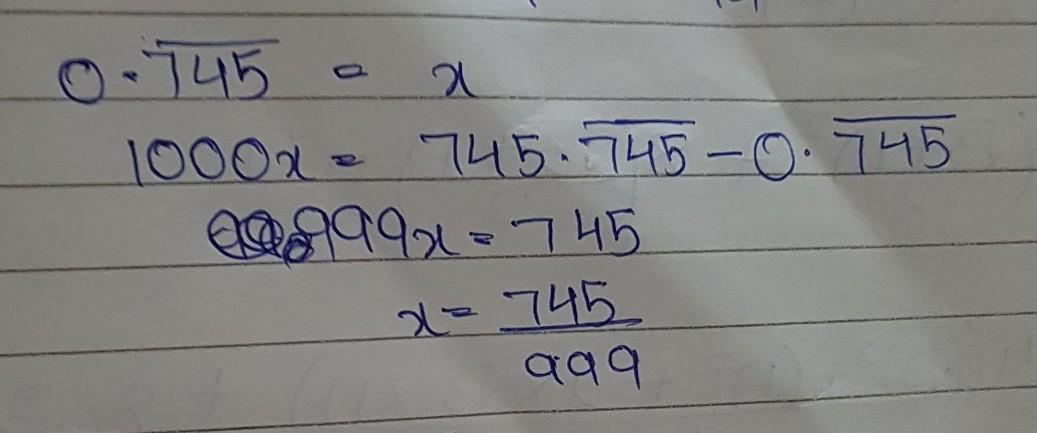 0.\overline{745} = x
1000x = 745.\overline{745} - 0.\overline{745}
999x = 745
x = \frac{745}{999}